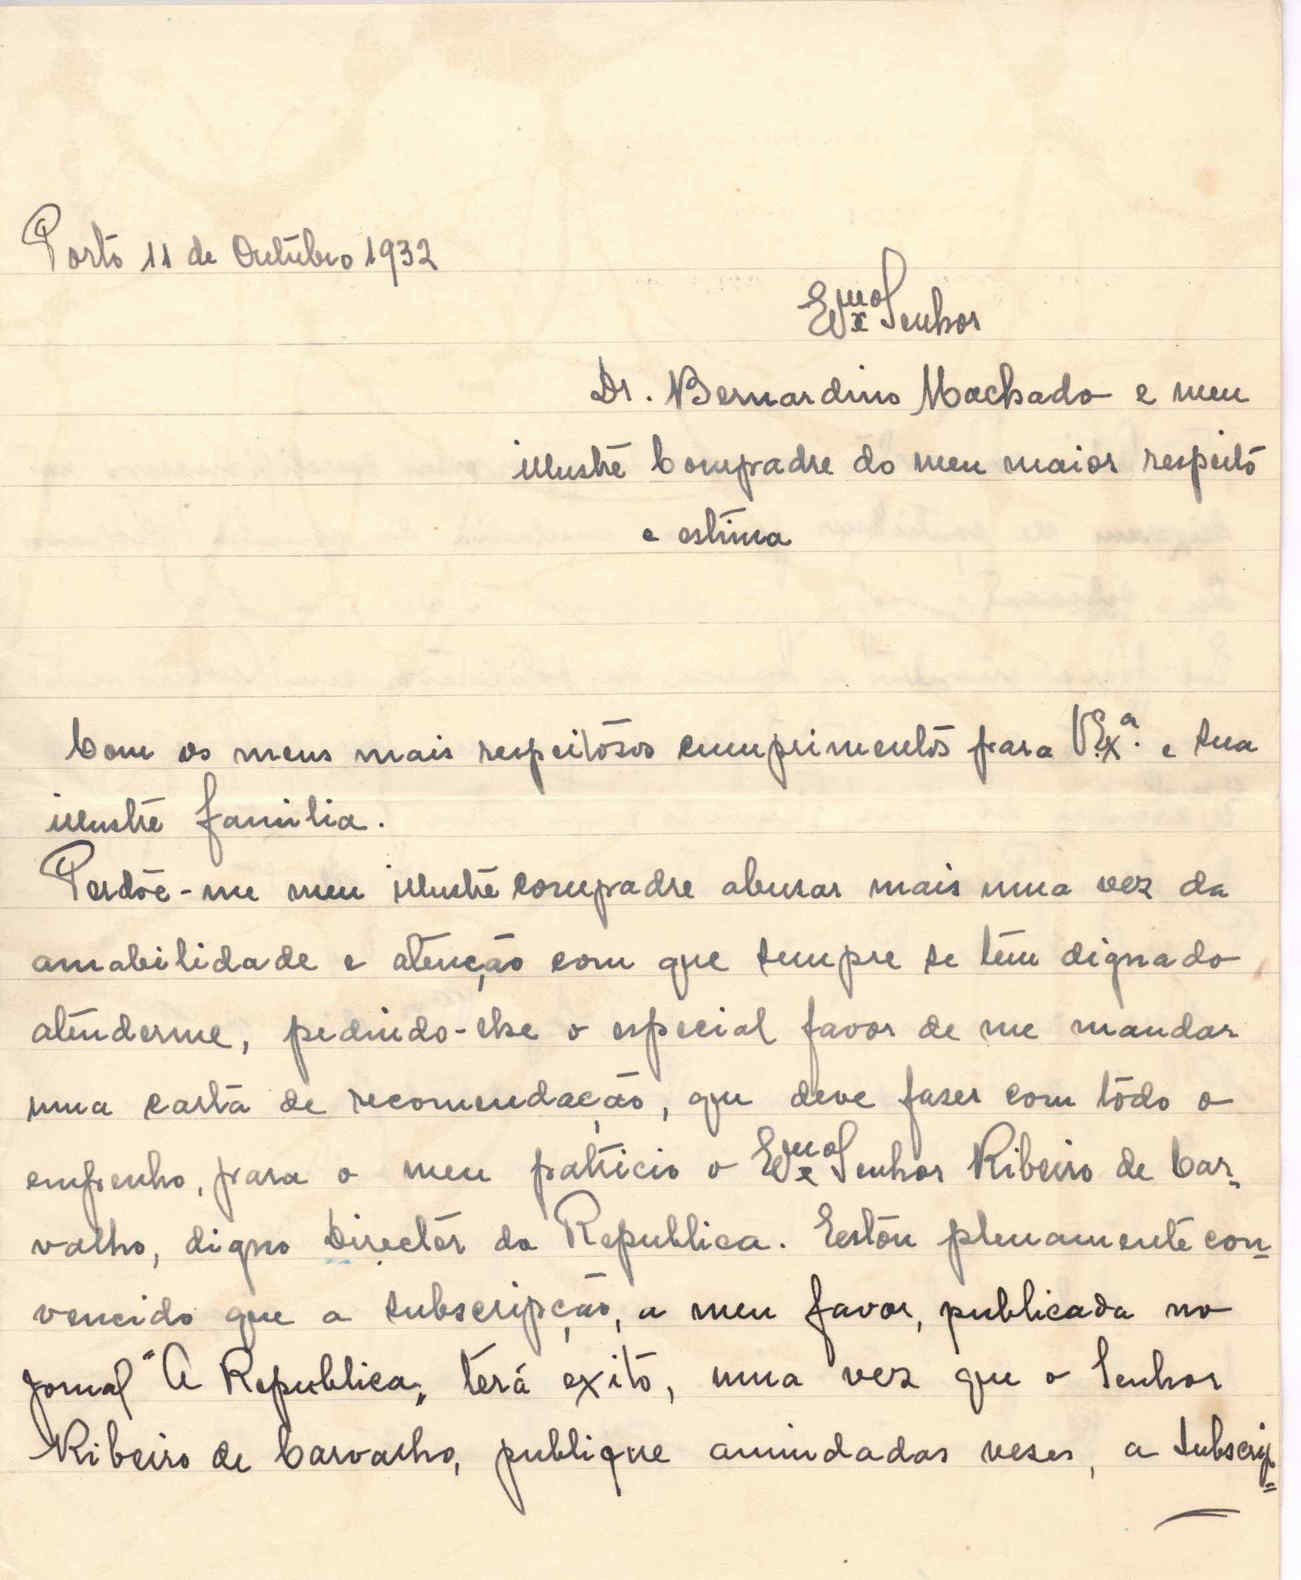 Porto 11 de Outubro 1932
Exmo Senhor
Dr. Bernardino Machado e meu
illustre Compadre do meu maior respeito
e estima
Com os meus mais respeitósos cumprimentos para V. Exª. e sua
illustre familia.
Perdõe-me meu illustre compadre abusar mais uma vez da
amabilidade e atenção com que sempre se tem dignado
atenderme, pedindo-lhe o especial favor de me mandar
uma carta de recomendação, que deve fazer com tôdo o
empenho, para o meu patricio o Exmo Senhor Ribeiro de Car-
valho, digno Directôr da Republica. Eestou plenamente con-
vencido que a subscripção, a meu favor, publicada no
jornal "A Republica", terá exito, uma vez que o Senhor
Ribeiro de Carvalho, publique amiudadas vezes, a subscrip=